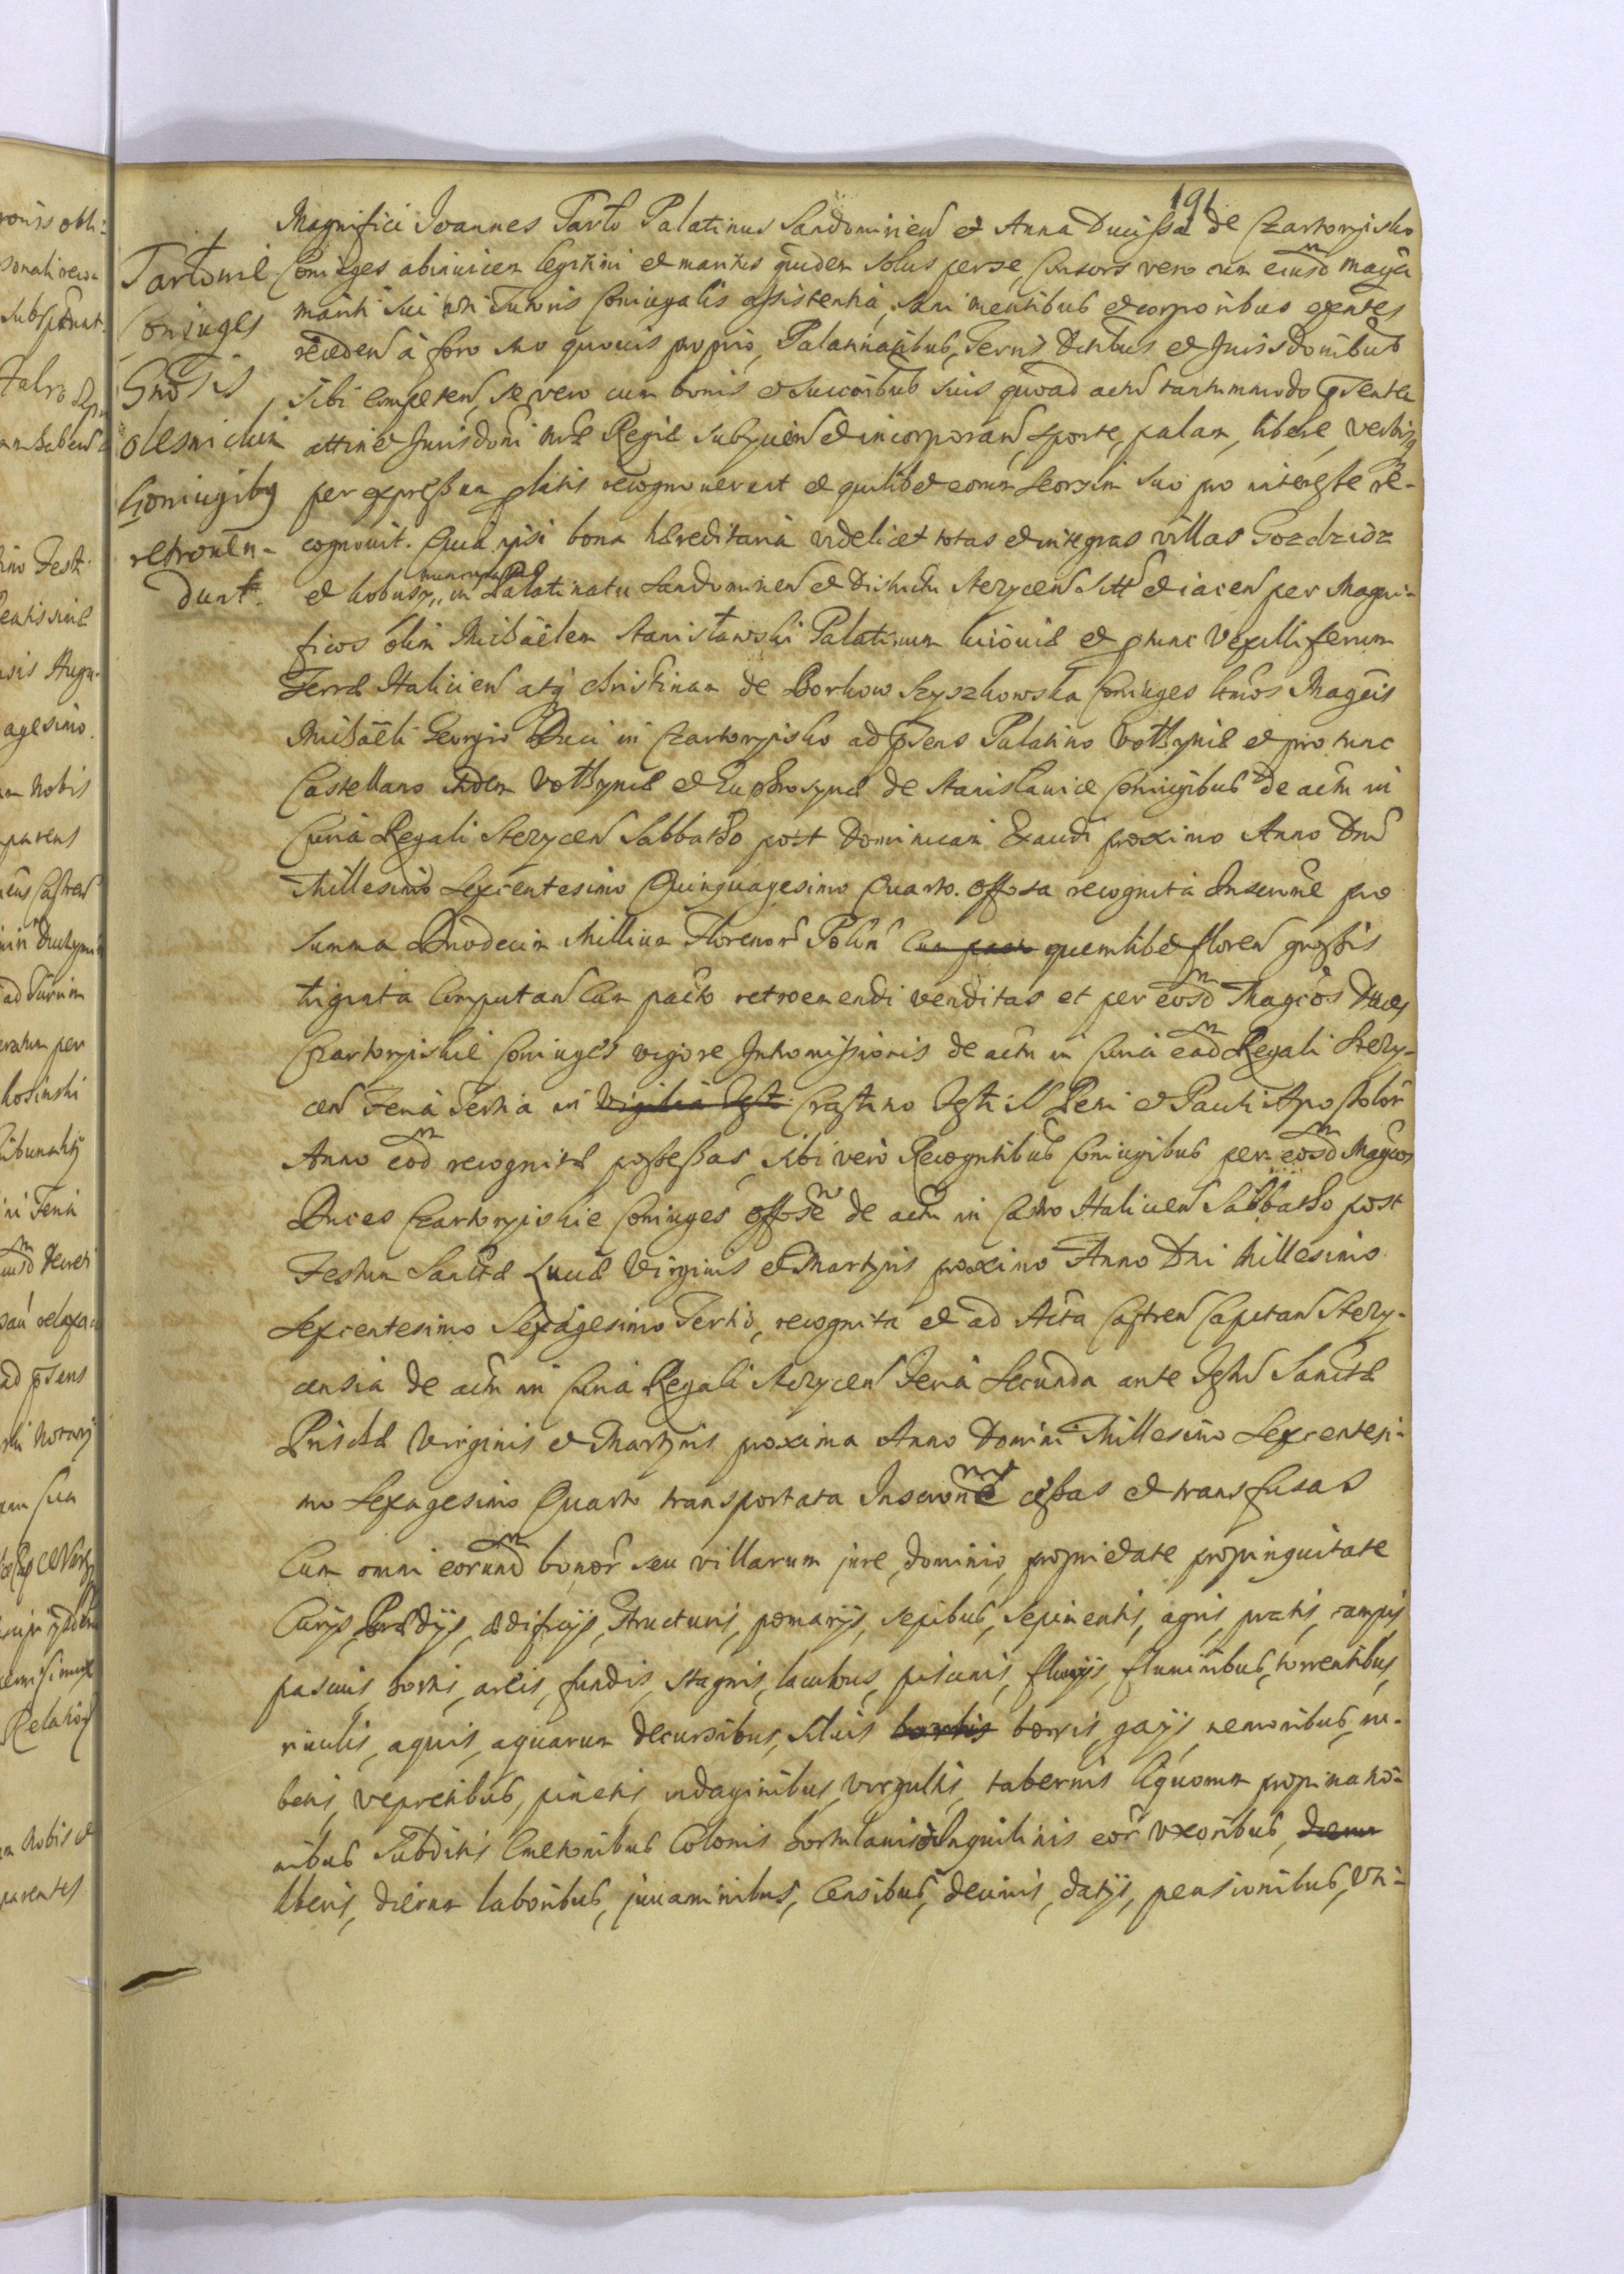 191
Magnifici Joannes Tarło Palatinus Sandomirien et Anna Ducissa de Czartoryisko
Coniuges abinuicem legitimi et maritus quidem solus per se, Consors vero cum eiusd Magci
mariti sui uti Tutoris Coniugalis assistentia, sani mentibus et corporibus exentes
receden à foro suo quouis proprio, Palatinatibus, Terris Dtibus et Jurisdonibus
sibi competen, se vero cum bonis et succoribus suis quoad actu tantummodo psentem
attinet Jurisdoni Regiæ subycien et incorporan sponte, palam, libere, verbisq
per expressum recognouerunt et quilibet eorum seorsim suo pro interesse re-
cognouit. Quia ipsi bona hæreditaria videlicet totas et integras villas Gozdzidz
et nuncupatas in Palatinatu Sandomirien et Districtu Stezycen sitt et iacen per Magni-
ficos olim Michaëlem Stanisławski Palatinum et ptunc Vexilliferum
Terræ Halicien atq Christinam de Borkow Szyszkowska Coniuges Magcis
Michaëli Georgio Duci in Czartoryisko ad psens Palatino Vołhyniæ et pro tunc
Castellano itidem Vołhyniæ et Euphrosynæ de Stanislawice Coniugibus de actu in
Curia Regali Stezycen Sabbatho post Dominicam Exaudi proximo Anno Dni
Millesimo Sexcentesimo Quinquagesimo Quarto. offosa recognita Inscrone pro
summa Duodecim Millium Florenor Polon quemlibet floren grossis
triginta computan Cum pacto retroemendi venditas et per eosd Magcos Duces
Czartoryiskie Coniuges vigore Intromissionis de actu in Curia ead Regali Stezy-
cen Feria Tertia in Vigilia Fest Crastino Festi SS Petri et Pauli Apostolor
Anno eod recognitæ possessas, sibi vero Recogntibus Coniugibus per eosd Magcos
Duces Czartoryiskie Coniuges offose de actu in Castro Halicien Sabbatho post
Festum Sanctæ Luciæ Virginis et Martyris proximo Anno Dni Millesimo
Sexcentesimo Sexagesimo Tertio, recognita et ad Acta Castren Capitan Stezy-
censia de actu in Curia Regali Stezycen Feria Secunda ante Festu Sanctæ
Priscæ Virginis et Martyris proxima Anno Domini Millesimo Sexcentesi-
mo Sexagesimo Quarto transportata Inscrone cessas et transfusas
Cum omni eorund bonor seu villarum jure, dominio, proprietate propinquitate
Curijs, Prædijs, ædificijs, structuris, pomarijs, sepibus, sepimentis, agris, pratis, campis
pascuis, hortis, areis, fundis, stagnis, lacubus, piscinis, fluuijs, fluminibus, torrentibus,
riuulis, aquis, aquarum decursibus, siluis borris, gaijs, nemoribus, ru-
betis, vepretibus, pinetis indaginibus, virgultis, tabernis liquorum propinatio-
nibus Subditis Cmetonibus Colonis hortulanis Inquilinis eor vxoribus,
liberis, dierum laboribus, juuaminibus, Censibus, decimis, datijs, pensionibus, vti-
Tarłowie
Coniuges
Gnosis
Olesnickim
Coniugibg
retrouen-
dunt.